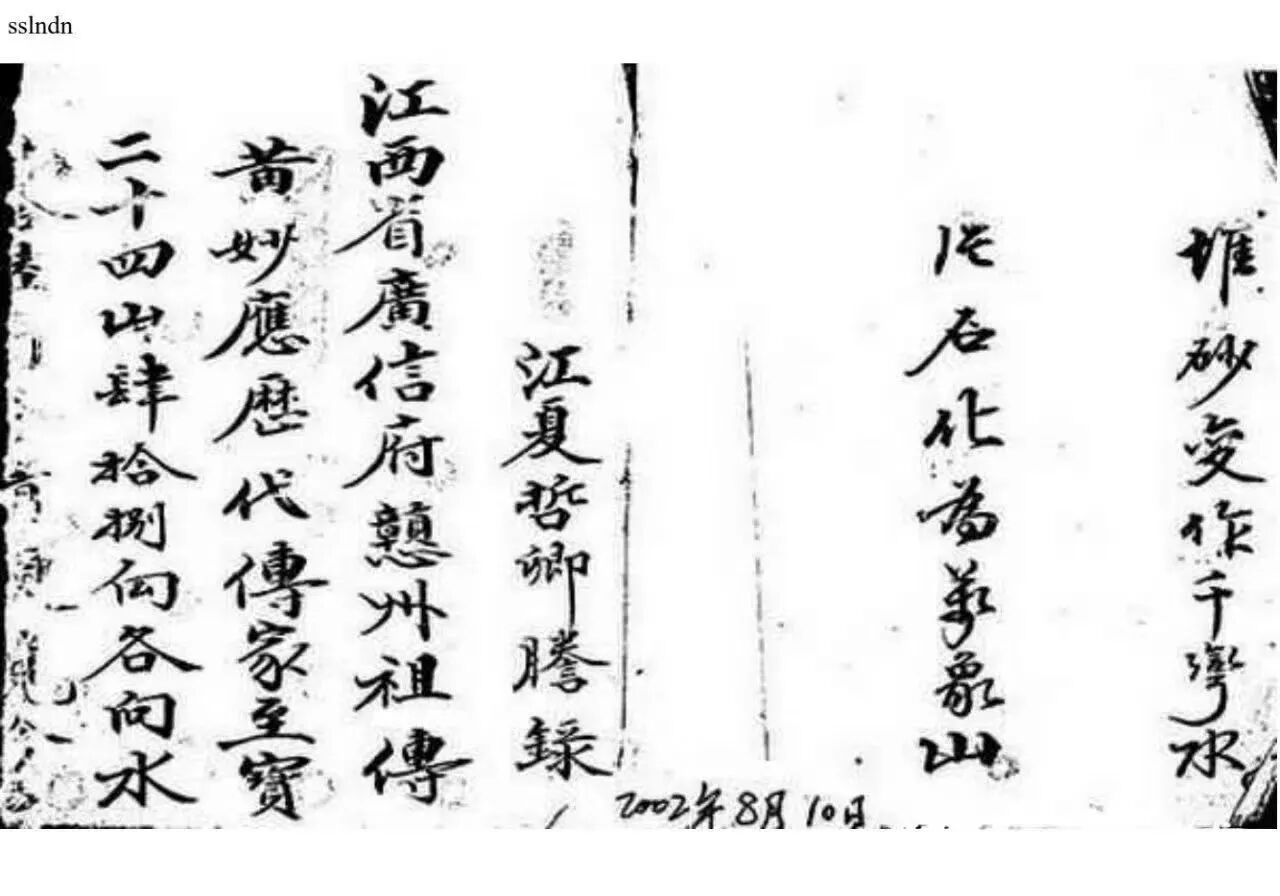 sslndn
堆砂变作千湾水
片石化為萬象山
江夏哲卿謄録
江西省廣信府戇州祖傳
黄妙應歷代傳家至寶
二十四山肆拾捌向各向水
2002年8月10日